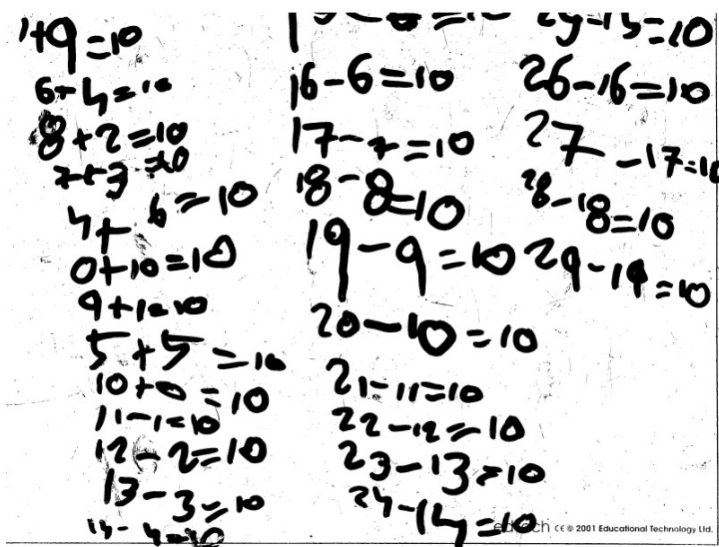 1+9=10
6+4=10
8+2=10
7+3=10
4+6=10
0+10=10
9+1=10
5+5=10
10+0=10
11-1=10
12-2=10
13-3=10
14-4=10
16-6=10
17-7=10
18-8=10
19-9=10
20-10=10
21-11=10
22-12=10
23-13=10
24-14=10
25-15=10
26-16=10
27-17=10
28-18=10
29-19=10
CE © 2001 Educational Technology Ltd.